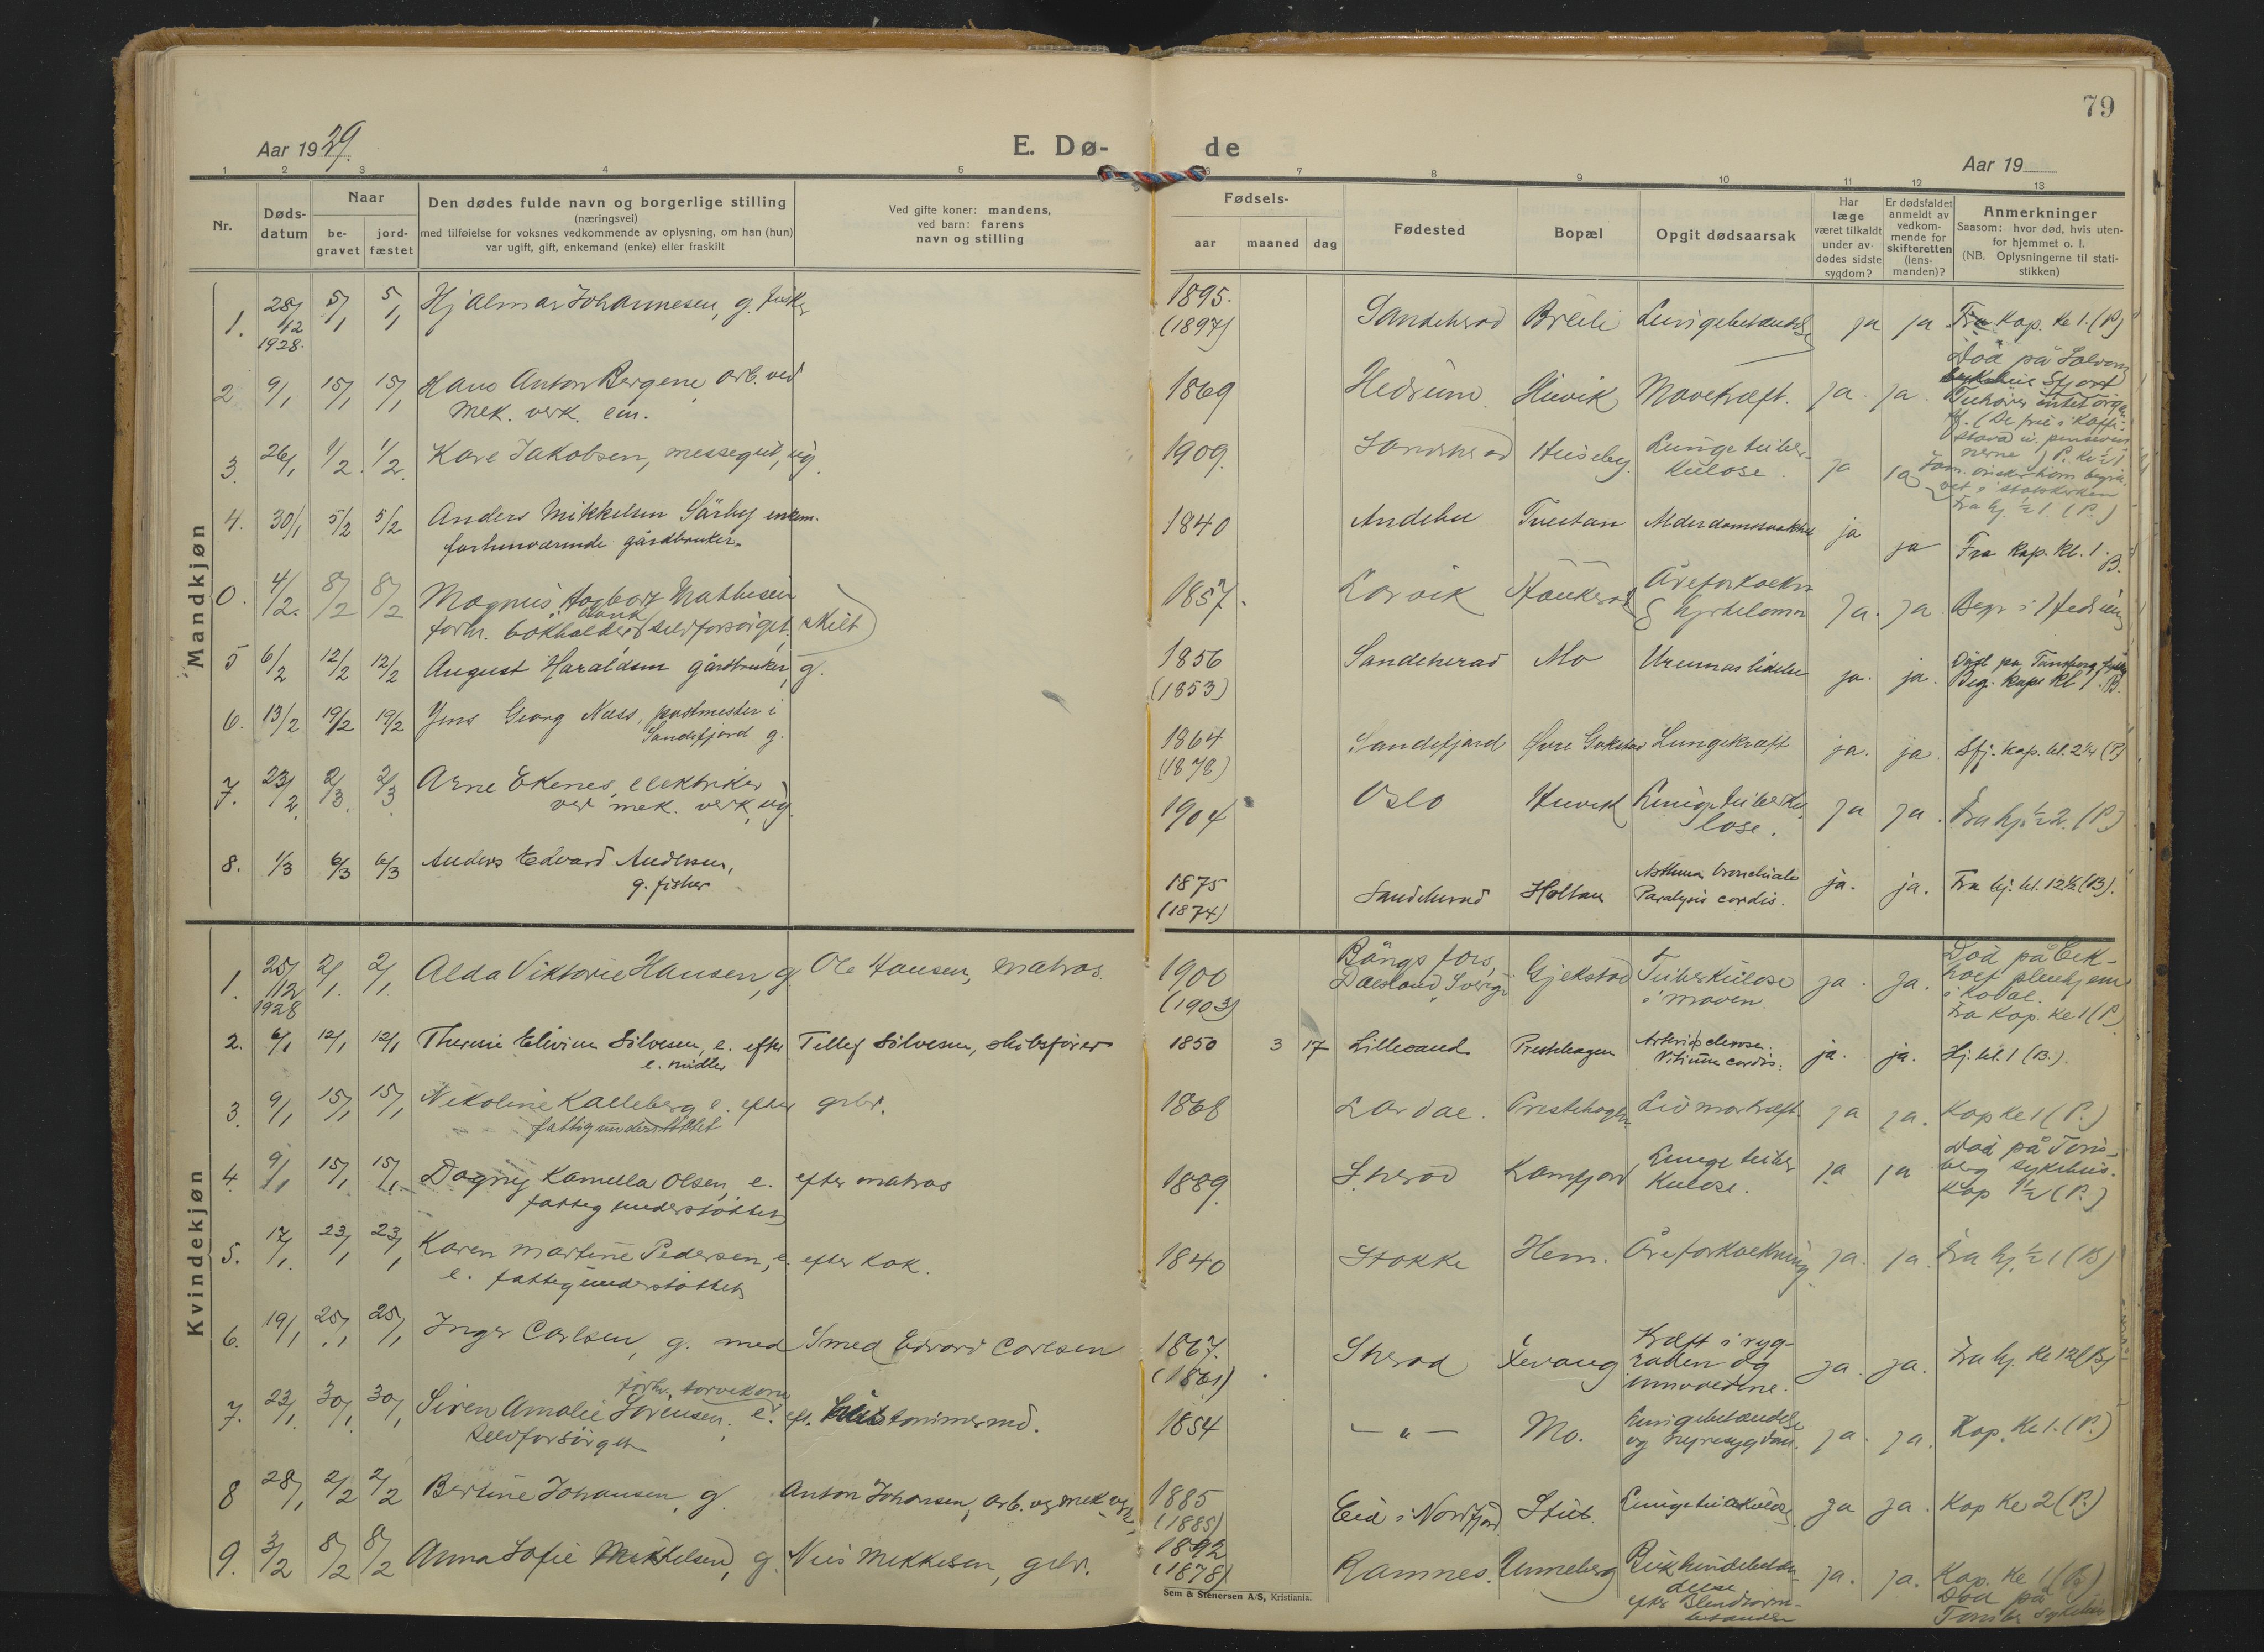 79
Aar 1929.
E. Dø-de
Aar 19
1 2 3 4 5 6 7 8 9 10 11 12 13
Nr.
Døds-
datum
Naar
be-
gravet
jord-
fæstet
Den dødes fulde navn og borgerlige stilling
(næringsvei)
med tilføielse for voksnes vedkommende av oplysning, om han (hun)
var ugift, gift, enkemand (enke) eller fraskilt
Ved gifte koner: mandens,
ved barn: farens
navn og stilling
Fødsels-
aar maaned dag
Fødested
Bopæl
Opgit dødsaarsak
Har
læge
været tilkaldt
under av-
dødes sidste
sygdom?
Er dødsfaldet
anmeldt av
vedkom-
mende for
skifteretten
(lens-
manden)?
Anmerkninger
Saasom: hvor død, hvis uten-
for hjemmet o. l.
(NB. Oplysningerne til stati-
stikken)
Mandkjøn
1. 28/12 1928. 5/1 5/1 Hjalmar Johannesen, g. fisker 1895. (1897) Sandeherad Breili Lungebetændelse ja ja Fra Kap. Kl 1. (P)
2 9/1 15/1 15/1 Hans Anton Bergene, arb. ved
mek. verk. em. 1869 Hedrum Huvik Mavekræft. ja. ja. Død på
3. 26/1 1/2. 1/2. Kare Jakobsen, messegut, ug. 1909. Sandeherad Huseby. Lungetuber-
kulose. ja ja
Fra hj. ½ 1. (P.)
4. 30/1 5/2 5/2 Anders Mikkelsen Särby enkem.
forhenværende gårdbruker. 1840 Andebu Tveitan Alderdomssvakhet ja ja Fra Kap. Kl. 1. B.
0. 4/2. 8/2 8/2 Magnus Hagbart Mathisen
forhv. bokholder i bank selvforsørget. skilt 1857. Larvik Haukerød Åreforkalkn.
& hjertelamm ja. ja Begr. i Hedrum
5 6/2 12/2 12/2 August Haraldsen gårdbruker, g. 1856 (1853) Sandeherad Mo Urinveislidelse ja. ja. Død på Tønsberg
Beg. Kap. Kl 1. B.
6. 13/2 19/2 19/2 Jens Georg Næss, postmester i
Sandefjord g. 1864 (1878) Sandefjord Øvre Gokstad Lungekræft ja. ja. Sfj. kap. kl. 2¼ (P)
7. 23/2 2/3. 2/3 Arne Ekenes, elektriker
ved mek. verk, ug. 1904 Oslo Huvik Lungetuberku-
lose. ja ja. Fra hj. ½ 2. (P.)
8. 1/3 6/3 6/3 Anders Edvard Andersen,
g. fisker 1875 (1874) Sandeherad Holtan Asthma bronchiale
Paralysis cordis. ja. ja. Fra hj. kl. 12½ (B).
Kvindekjøn
1. 25/12 1928 2/1. 2/1. Alda Viktorie Hansen, g Ole Hansen, matros. 1900 (1903) Bängsfors,
Dalsland, Sverige Gjekstad Tuberkulose
i maven. ja. ja. Død på Eik-
holt pleiehjem
i Kodal.
Fra Kap. Kl 1 (P)
2. 6/1 12/1 12/1 Therese Elvine Sølvesen, e. efter Tellef Sølvesen, skibsfører
e. midler 1850 3 17 Lillesand Prestehagen Arteriosclerose.
Vitium cordis. ja. ja. Hj. kl. 1 (B.).
3. 9/1 15/1 15/1 Nikoline Kalleberg e. efter gbr.
fattigunderstøttet 1868 Lardal. Prestehagen Livmorkræft. ja ja. Kap Kl 1 (P.)
4. 9/1 15/1 15/1. Dagny Kamilla Olsen, e. efter matros
fattigunderstøttet 1889. S.herad Kamfjord Lungetuber
kulose. ja ja Død på Tøns-
berg sykehus.
Kap ½ 1 (P.)
5. 17/1. 23/1 23/1 Karen Martine Pedersen, e. efter kok.
e. fattigunderstøttet 1840 Stokke Hem. Åreforkalkning ja. ja. Fra hj. ½ 1 (B)
6. 19/1 25/1 25/1 Inger Carlsen, g. med Smed Edvard Carlsen 1867. (1861) Sherad Kræft i ryg-
raden og
innvollene. ja. ja. Fra hj. Kl 12 (B)
7. 23/1. 30/1. 30/1 Siren Amalie Sørensen. e. eft. tømmermd.
forhv. torvekone
selvforsørget 1854 — " — Mo. Lungebetændelse
og nyresygdom. ja. ja. Kap. Kl 1. (P.)
8 28/1 2/2 2/2 Bertine Johansen, g. Anton Johansen, arb. v. mek. v. 1885 (1885) Eid i Nordfjord Stub. Lungetuberkulose ja ja. Kap Kl 2 (P.)
9. 3/2 8/2 8/2 Anna Sofie Mikkelsen, g. Nils Mikkelsen, gbr. 1892 (1878) Ramnes. Unneberg Bukhindebetæn-
delse
efter Blindtarm-
betændelse ja. ja. Kap. Kl 1 (B)
Død på
Tønsb. Sykehus
Sem & Stenersen A/S, Kristiania.